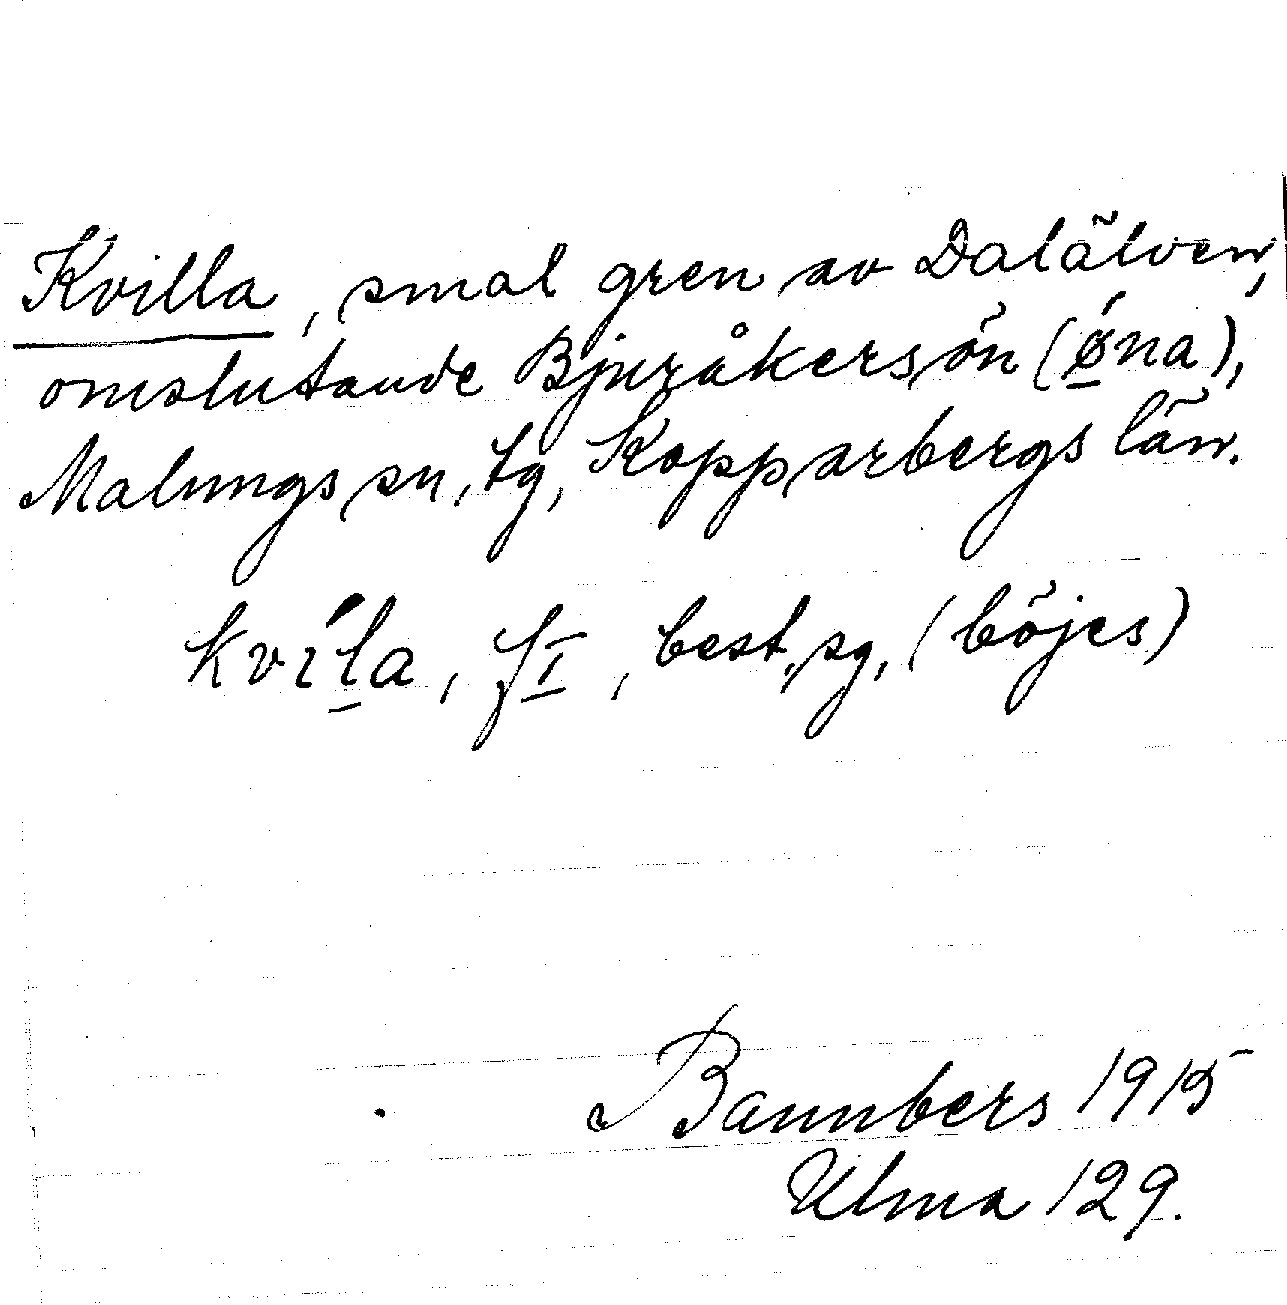 Kvilla, smal gren av Dalälven,
omslutande Bjuråkersön (ǿna),
Malungs sn, tg, Kopparbergs län.
kvíla, fI, best. sg, (böjes)
Bannbers 1915
Ulma 129.